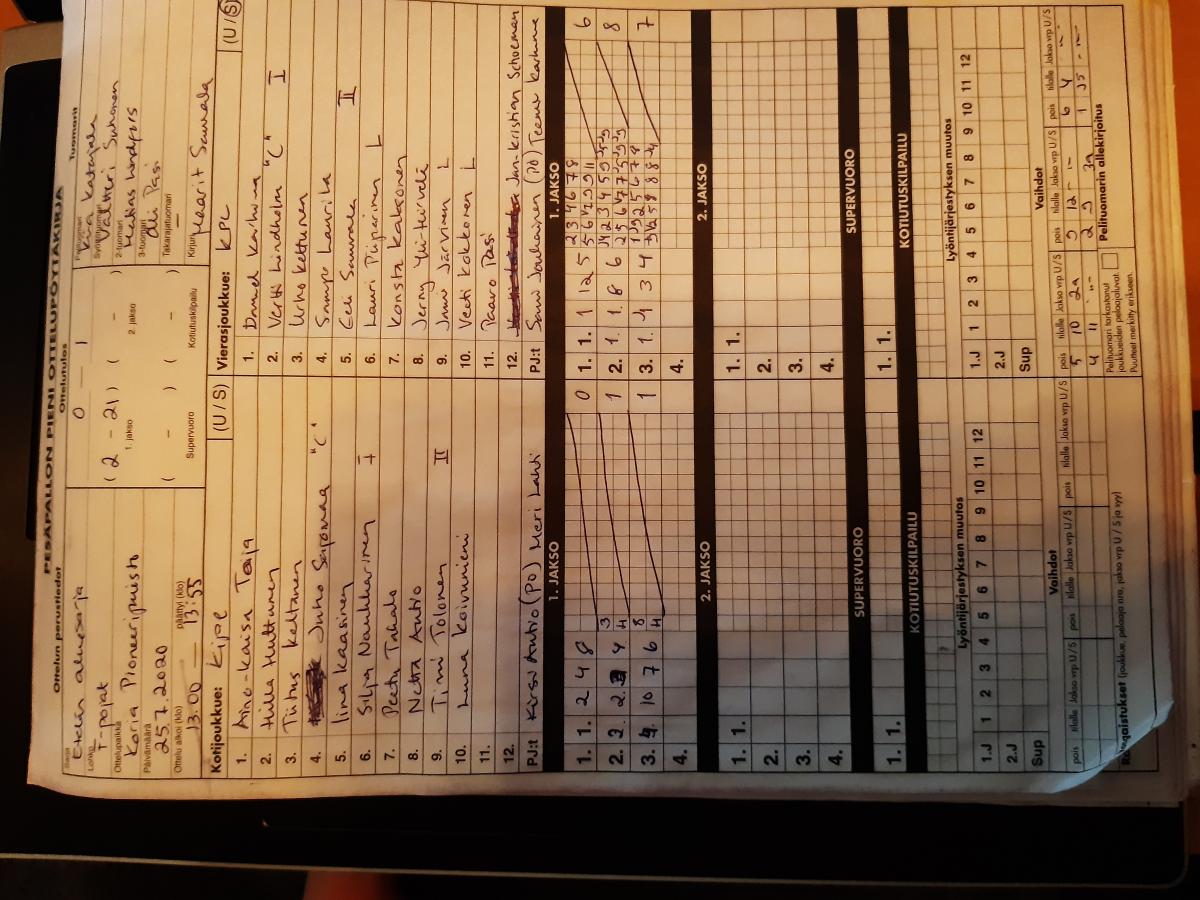 PESÄPALLON PIENI OTTELUPÖYTÄKIRJA
Ottelun perustiedot
Ottelutulos
Tuomarit
Sarja
Etelän aluesarja
Lohko
F-pojat
Ottelupaikka
Koria Pioneeripuisto
Päivämäärä
25.7.2020
Ottelu alkoi (klo)
päättyi (klo)
13.00 — 13:55
0 1
( 2 - 21 ) ( - )
1. jakso
2. jakso
( - ) ( - )
Supervuoro
Kotiutuskilpailu
Pelituomari
Syöttötuomari
Valtteri Suhonen
2-tuomari
Matias Lindfors
3-tuomari
Oli Pasi
Takarajatuomari
—
Kirjuri
Maarit Saunala
Kotijoukkue: KiPe (U / S)
1. Aino-Kaisa Toija
2. Hilla Huttunen
3. Tiitus Keltanen
4. Juho Seppomaa "C"
5. Iina Kaasinen
6. Silja Naukkarinen I
7. Peetu Tahalo
8. Netta Autio
9. Timi Tolonen II
10. Luna Koivuniemi
11.
12.
PJ:t Kirsi Autio (PO) Meri Lahti
Vierasjoukkue: KPL (U / S)
1. Daniel Karhuma
2. Vertti Lindholm "C" I
3. Urho Kettunen
4. Sampo Laurila
5. Eeli Saunala II
6. Lauri Piiparinen L
7. Konsta Kaksonen
8. Jerny Ylitirvelä
9. Jani Järvinen L
10. Veeti Kokkonen L
11. Paavo Pasi
12. Jan-Kristian Schoeman
PJ:t Sami Jouhiainen (PO) Teemu Karhuma
1. JAKSO
1. 1. 1. 2 4 8 0
2. 3. 2. 4 3 4 1
3. 4. 10 7 6 8 4 1
4.
1. JAKSO
1. 1. 1. 1 2 5 6
2. 1. 1. 8 6 8
3. 1. 4 3 4 7
4.
2. JAKSO
1. 1.
2.
3.
4.
2. JAKSO
1. 1.
2.
3.
4.
SUPERVUORO
1. 1.
SUPERVUORO
1. 1.
KOTIUTUSKILPAILU
KOTIUTUSKILPAILU
Lyöntijärjestyksen muutos
1.J 1 2 3 4 5 6 7 8 9 10 11 12
2.J
Sup
Lyöntijärjestyksen muutos
1.J 1 2 3 4 5 6 7 8 9 10 11 12
2.J
Sup
Vaihdot
pois tilalle Jakso vrp U / S pois tilalle Jakso vrp U / S pois tilalle Jakso vrp U / S
Vaihdot
pois tilalle Jakso vrp U / S pois tilalle Jakso vrp U / S pois tilalle Jakso vrp U / S
5 10 2a 3 12 -"- 6 4 -"-
4 11 -"- 2 9 3a 1 5 -"-
Rangaistukset (joukkue, pelaaja nro, jakso vrp U / S ja syy)
Pelituomari tarkastanut
joukkueiden pelaajaluvat.
Puutteet merkitty erikseen.
Pelituomarin allekirjoitus